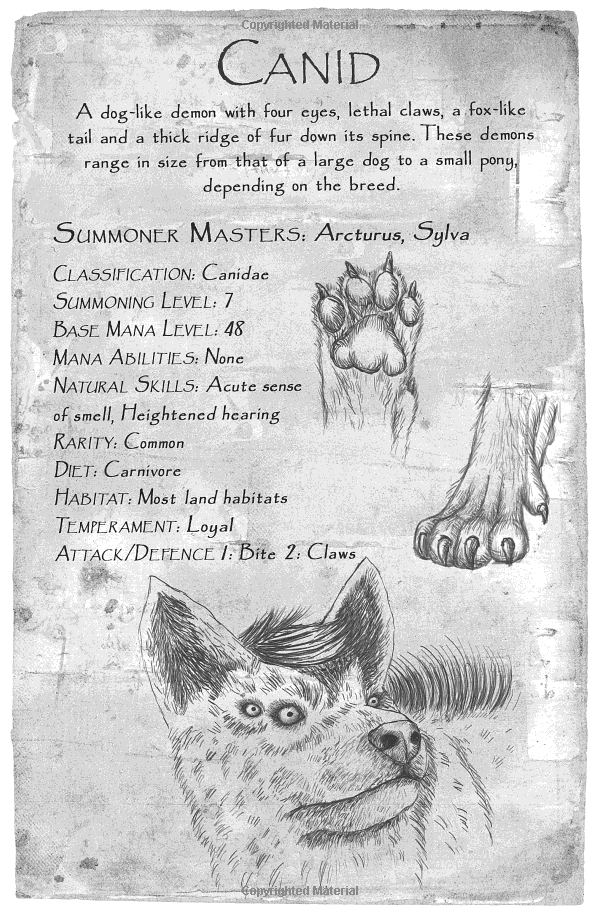 Copyrighted Material
CANID
A dog-like demon with four eyes, lethal claws, a fox-like
tail and a thick ridge of fur down its spine. These demons
range in size from that of a large dog to a small pony,
depending on the breed.
SUMMONER MASTERS: Arcturus, Sylva
CLASSIFICATION: Canidae
SUMMONING LEVEL: 7
BASE MANA LEVEL: 48
MANA ABILITIES: None
NATURAL SKILLS: Acute sense
of smell, Heightened hearing
RARITY: Common
DIET: Carnivore
HABITAT: Most land habitats
TEMPERAMENT: Loyal
ATTACK/DEFENCE 1: Bite 2: Claws
Copyrighted Material